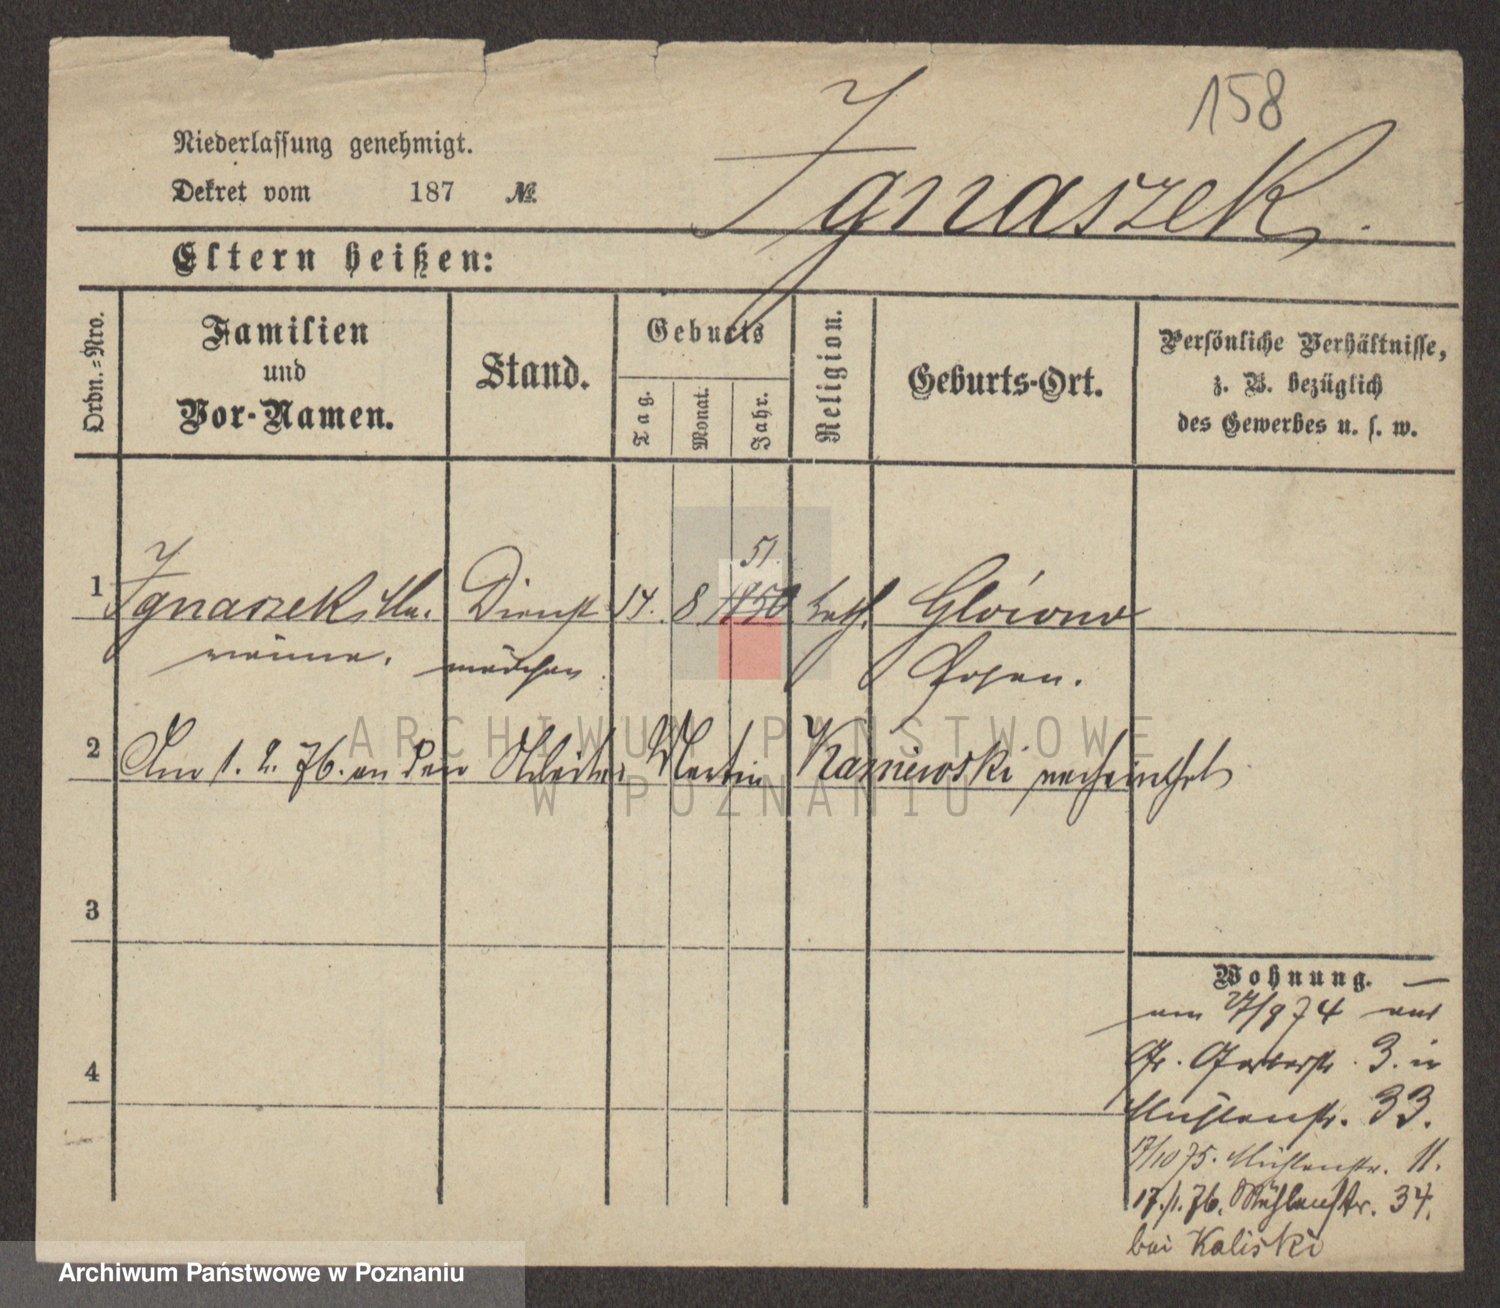 158
Ignaszek.
Niederlassung genehmigt.
Dekret vom 187 №
Eltern heißen:
Ordn.-Nro.
Familien
und
Vor-Namen.
Stand.
Geburts
Tag.
Monat.
Jahr.
Religion.
Geburts-Ort.
Persönliche Verhältnisse,
z. B. bezüglich
des Gewerbes u. s. w.
51
1 Ignaszek, Ma- Dienst 14. 8 1850 kath.
rianna. mädchen Posen.
2 Am 1. 2. 76. an den Arbeiter Martin Kasniewski verheirathet
3
4
Wohnung.
am 27/9 74 aus
Gr. Gerberstr. 3. in
Mühlenstr. 33.
17/10 75. Mühlenstr. 11.
17./1. 76. Mühlenstr. 34.
bei Kaliski
ARCHIWUM PAŃSTWOWE
W POZNANIU
Archiwum Państwowe w Poznaniu